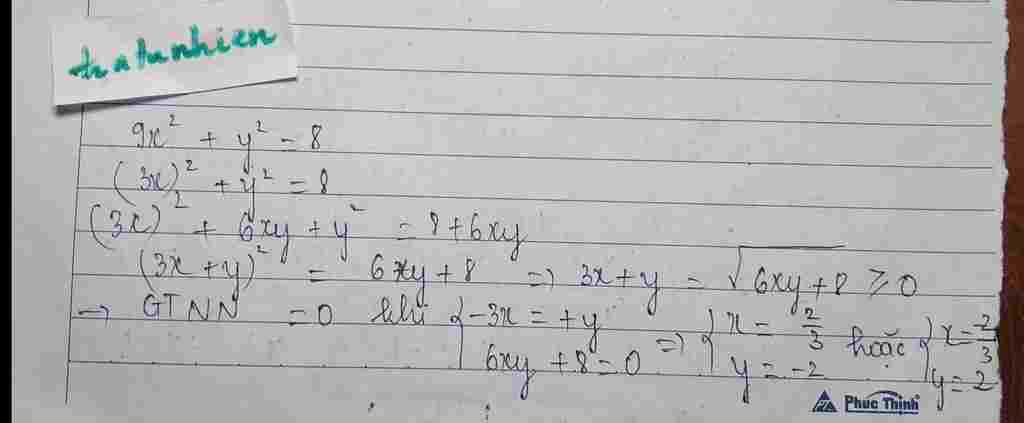 tratunhien
9x² + y² = 8
(3x)² + y² = 8
(3x)² + 6xy + y² = 8 + 6xy
(3x + y)² = 6xy + 8 => 3x + y = √(6xy + 8) ≥ 0
→ GTNN = 0 khi { -3x = +y => { x = 2/3 hoặc { x = 2/3
6xy + 8 = 0 y = -2 y = 2
Phuc Thinh